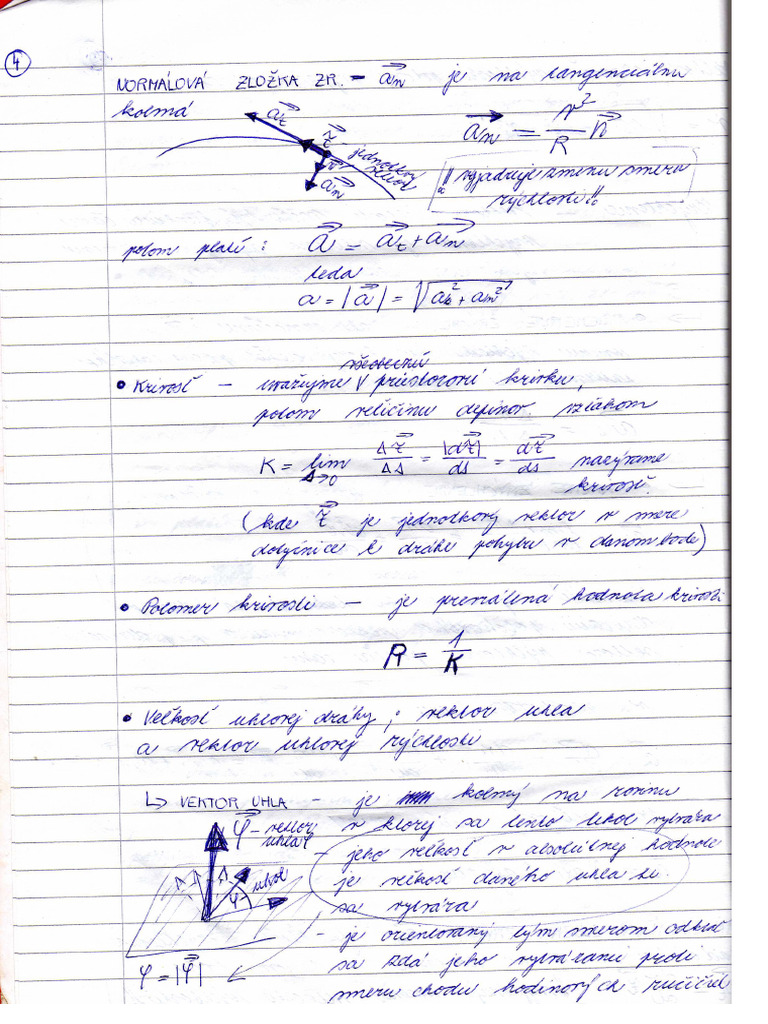 4
NORMÁLOVÁ ZLOŽKA ZR. - a⃗n je na tangenciálnu
kolmá
a⃗t
τ⃗ - jednotkový vektor
n⃗
a⃗n
a⃗n = v²/R n⃗
"vyjadruje zmenu smeru
rýchlosti"
potom platí: a⃗ = a⃗t + a⃗n
teda
a = |a⃗| = √(at² + an²)
všeobecnú
• Krivosť - uvažujme V priestorovú krivku,
potom veličinu definov. vzťahom
K = lim Δτ⃗/Δs = |dτ⃗|/ds = dτ⃗/ds nazývame
Δ→0 krivosť.
(kde τ⃗ je jednotkový vektor v smere
dotyčnice k dráhe pohybu v danom bode)
• Polomer krivosti - je prevrátená hodnota krivosti
R = 1/K
• Veľkosť uhlovej dráhy; vektor uhla
a vektor uhlovej rýchlosti.
↳ VEKTOR UHLA - je kolmý na rovinu
v ktorej sa tento uhol vytvára
φ⃗ - vektor uhla φ
φ - uhol
- jeho veľkosť v absolútnej hodnote
je veľkosť daného uhla
sa vytvára
- je orientovaný tým smerom odkiaľ
sa zdá jeho vytváranie proti
φ = |φ⃗|
smeru chodu hodinových ručičiek